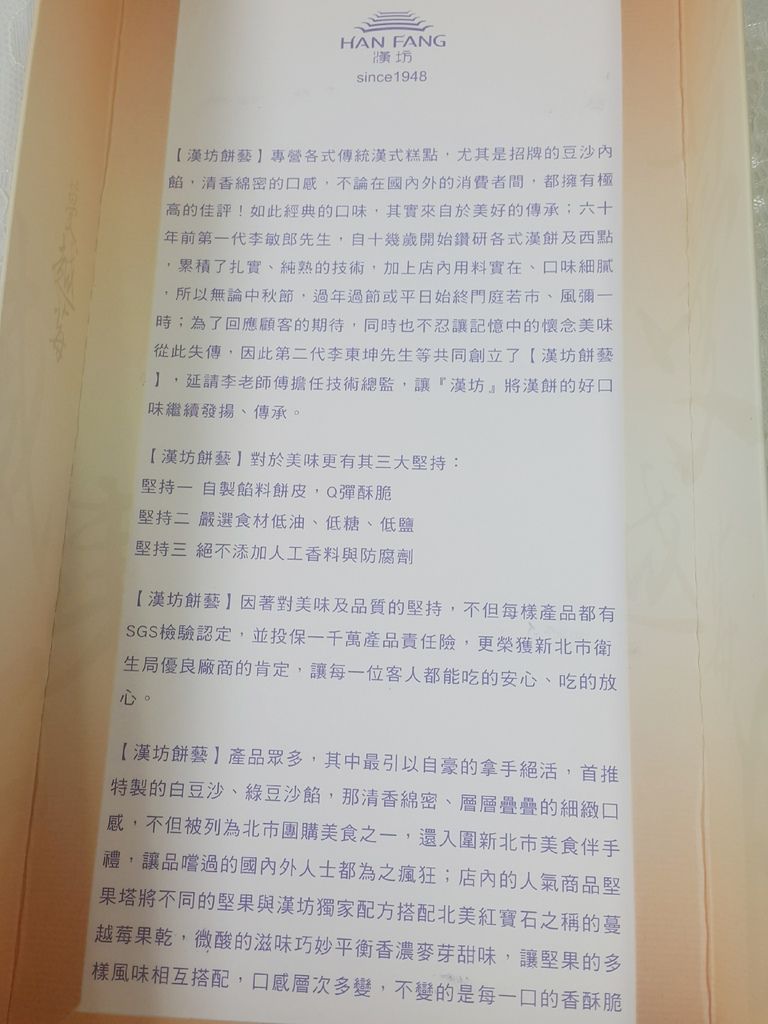 HAN FANG
漢坊
since1948
【漢坊餅藝】專營各式傳統漢式糕點，尤其是招牌的豆沙內
餡，清香綿密的口感，不論在國內外的消費者間，都擁有極
高的佳評！如此經典的口味，其實來自於美好的傳承；六十
年前第一代李敏郎先生，自十幾歲開始鑽研各式漢餅及西點
，累積了扎實、純熟的技術，加上店內用料實在、口味細膩
，所以無論中秋節，過年過節或平日始終門庭若市、風彌一
時；為了回應顧客的期待，同時也不忍讓記憶中的懷念美味
從此失傳，因此第二代李東坤先生等共同創立了【漢坊餅藝
】，延請李老師傅擔任技術總監，讓『漢坊』將漢餅的好口
味繼續發揚、傳承。
【漢坊餅藝】對於美味更有其三大堅持：
堅持一 自製餡料餅皮，Q彈酥脆
堅持二 嚴選食材低油、低糖、低鹽
堅持三 絕不添加人工香料與防腐劑
【漢坊餅藝】因著對美味及品質的堅持，不但每樣產品都有
SGS檢驗認定，並投保一千萬產品責任險，更榮獲新北市衛
生局優良廠商的肯定，讓每一位客人都能吃的安心、吃的放
心。
【漢坊餅藝】產品眾多，其中最引以自豪的拿手絕活，首推
特製的白豆沙、綠豆沙餡，那清香綿密、層層疊疊的細緻口
感，不但被列為北市團購美食之一，還入圍新北市美食伴手
禮，讓品嚐過的國內外人士都為之瘋狂；店內的人氣商品堅
果塔將不同的堅果與漢坊獨家配方搭配北美紅寶石之稱的蔓
越莓果乾，微酸的滋味巧妙平衡香濃麥芽甜味，讓堅果的多
樣風味相互搭配，口感層次多變，不變的是每一口的香酥脆